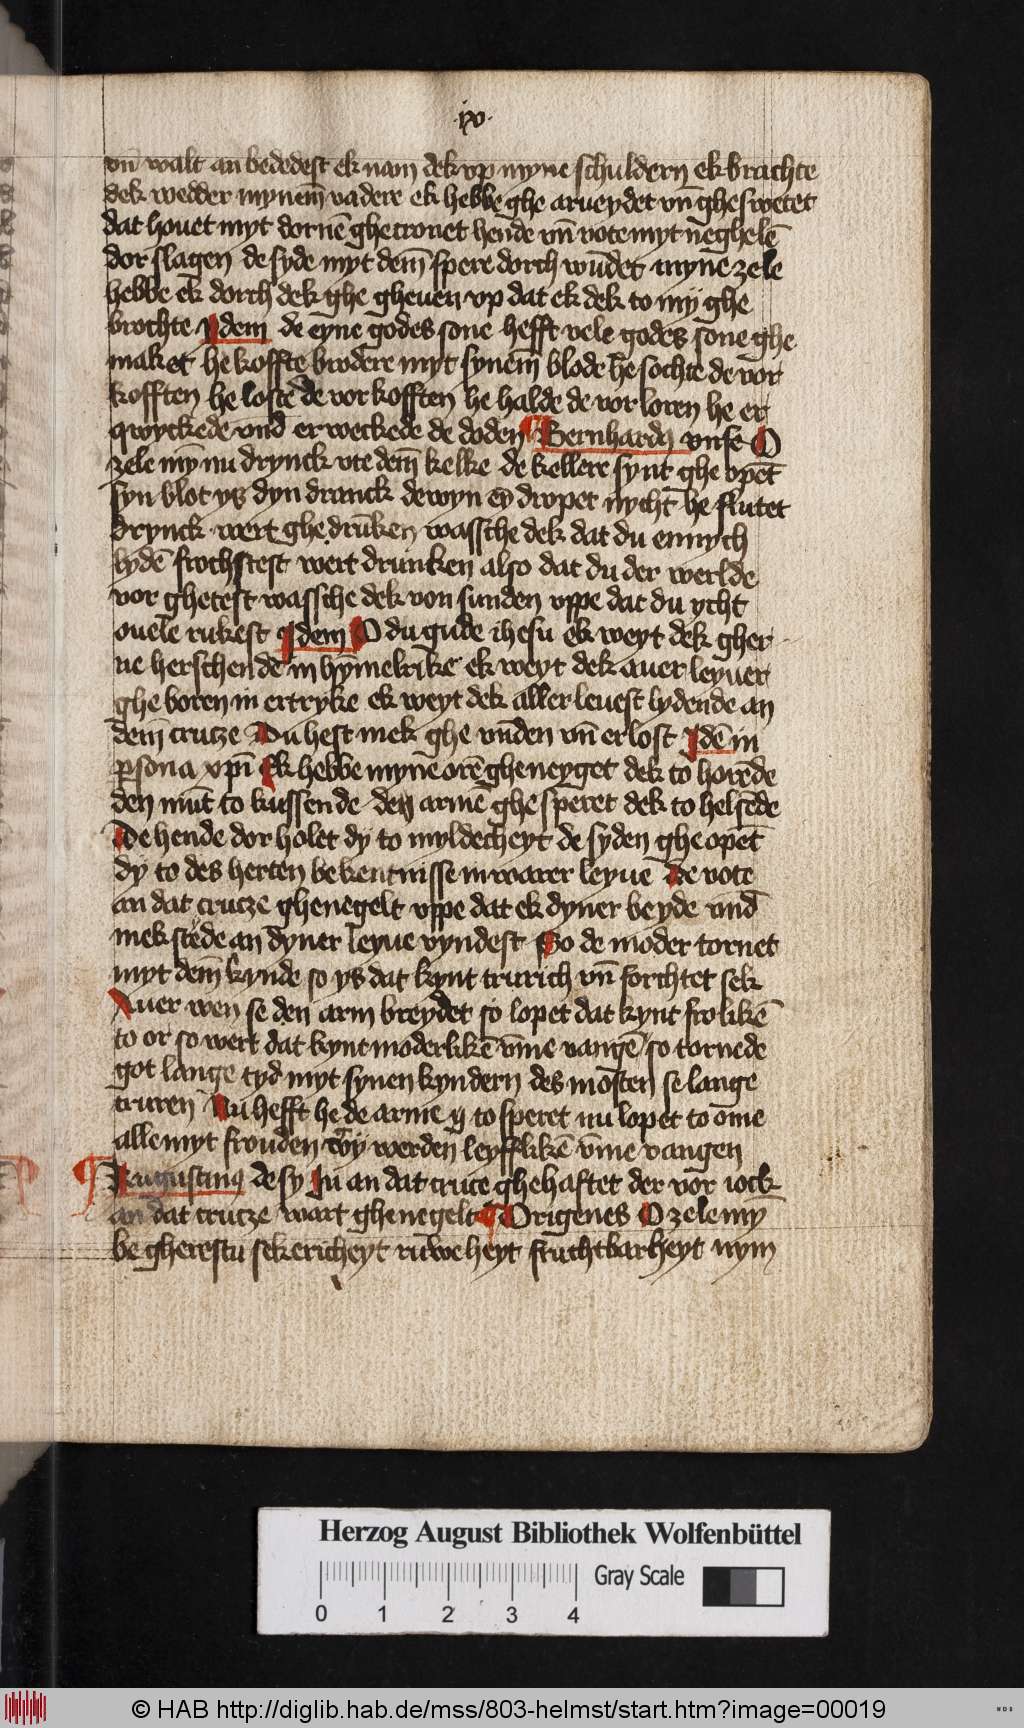 ·ix·
vn̄ walt an bededest ek nam dek vp myne schuldern ek brachte
dek wedder mynem̄ vadere ek hebbe ghe arueydet vn̄ ghe swetet
dat houet myt dornē ghe cronet hende vn̄ vote myt neghelē
dor slagen de syde myt dem̄ spere dorch wūdet mynē zele
hebbe ek dorch dek ghe gheuen vp dat ek dek to my ghe
brochte Idem de eyne godes sone hefft vele godes sone ghe
maket he koffte brodere myt synem̄ blode he sochte de vor
kofften he loste de vorkofften he halde de vor loren he er
qwyckede vnd er weckede de doden Bernhardꝯ vnse O
zele my nu drynck vte dem̄ kelke de kellere synt ghe opēt
syn blot ys dyn dranck de wyn en dropet nycht he flutet
drynck wert ghe drūken wassche dek dat du en nych
lydē frochstest wert drunken also dat du der werlde
vor ghetest wassche dek von sunden vppe dat du ycht
ouele rukest Idem O du gude ihesu ek weyt dek gher
ne herschende in hȳmelrike ek weyt dek auer leyuer
ghe boren in ertryke ek weyt dek aller leuest lydende an
dem̄ crutze Du hest mek ghe vnden vn̄ erlost Idē in
ꝑsona xpi Ek hebbe mynē orē gheneyget dek to horēde
den mūt to kussende den armē ghe speret dek to helsēde
De hende dor holet dy to myldecheyt de syden ghe opēt
dy to des herten bekentnisse in warer leyue De vote
an dat crutze ghenegelt vppe dat ek dyner beyde vnd
mek stede an dyner leyue vyndest So de moder tornet
myt dem̄ kynde so ys dat kynt trurich vn̄ forchtet sek
Auer wen se den arm breydet so lopet dat kynt frolikē
to or so wert dat kynt moderlikē vm̄e vangē so tornede
got lange tyd myt synen kyndern des mosten se lange
truren Nu hefft he de arme to speret nu lopet to ome
alle myt frouden wy werden leyfflikē vm̄e vangen
Augustinꝯ de sy Iu an dat cruce ghehaftet der vor iock
an dat crutze wart ghenegelt Origenes O zele my
be gherestu sekericheyt ruweheyt fruchtbarheyt nym
Herzog August Bibliothek Wolfenbüttel
Gray Scale
0 1 2 3 4
© HAB http://diglib.hab.de/mss/803-helmst/start.htm?image=00019